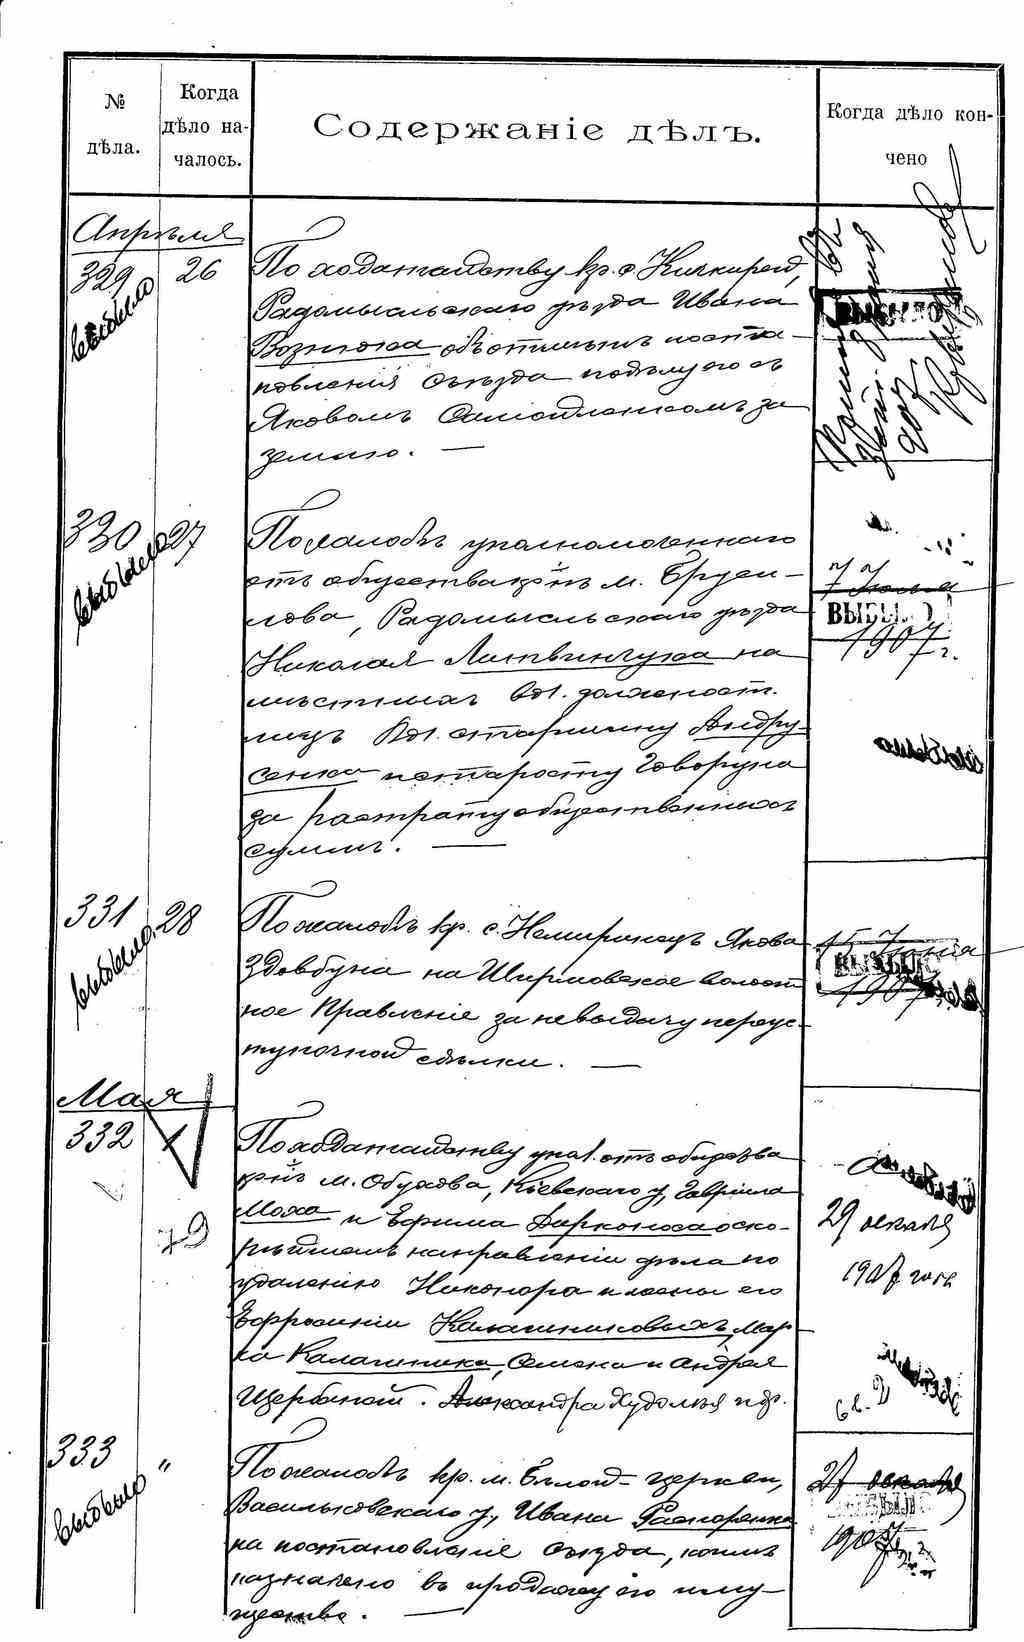 № дѣла.
Когда дѣло на-
чалось.
Содержаніе дѣлъ.
Когда дѣло кон-
чено
Апрѣля
329 26
выбыло
По ходатайству кр. с.
Радомысльскаго уѣзда Ивана
Вознюка объ отмѣнѣ поста-
новленія Съѣзда по дѣлу его съ
Яковомъ за
землю. —
ВЫБЫЛО
330 27
выбыло
По жалобѣ уполномоченнаго
отъ общества кр-нъ м. Бруси-
лова, Радомысльскаго уѣзда
Николая Литвинчука на
мѣстныхъ вол. должност.
лицъ вол. старшину Андру-
сенка и старосту Говоруна
за растрату общественныхъ
суммъ. —
7 Іюля
ВЫБЫЛО
1907 г.
выбыло
331 28
выбыло
По жалобѣ кр. с. Немиринецъ Якова
Здовбуна на Ширмовское волост
ное Правленіе за невыдачу переус-
тупочной сдѣлки. —
15 Іюня
ВЫБЫЛО
1907
Мая
332 1
79
По ходатайству упол. отъ общества
кр-нъ м. Обухова, Кіевскаго у, Гавріила
Моха и Ефима Дарконоса о ско-
рѣйшемъ направленіи дѣла по
удаленію Никонора и жены его
Ефросиніи Калашниковыхъ, Мар-
ка Калашника, Семена и Андрея
Щербиной. Александра Худолѣя и др.
29 декабря
1907 года
333 "
выбыло
По жалобѣ кр. м. Бѣлой-Церкви,
Васильковскаго у, Ивана
на постановленіе Съѣзда, коимъ
назначено въ продажу его иму-
щество. —
27 декабря
ВЫБЫЛО
1907